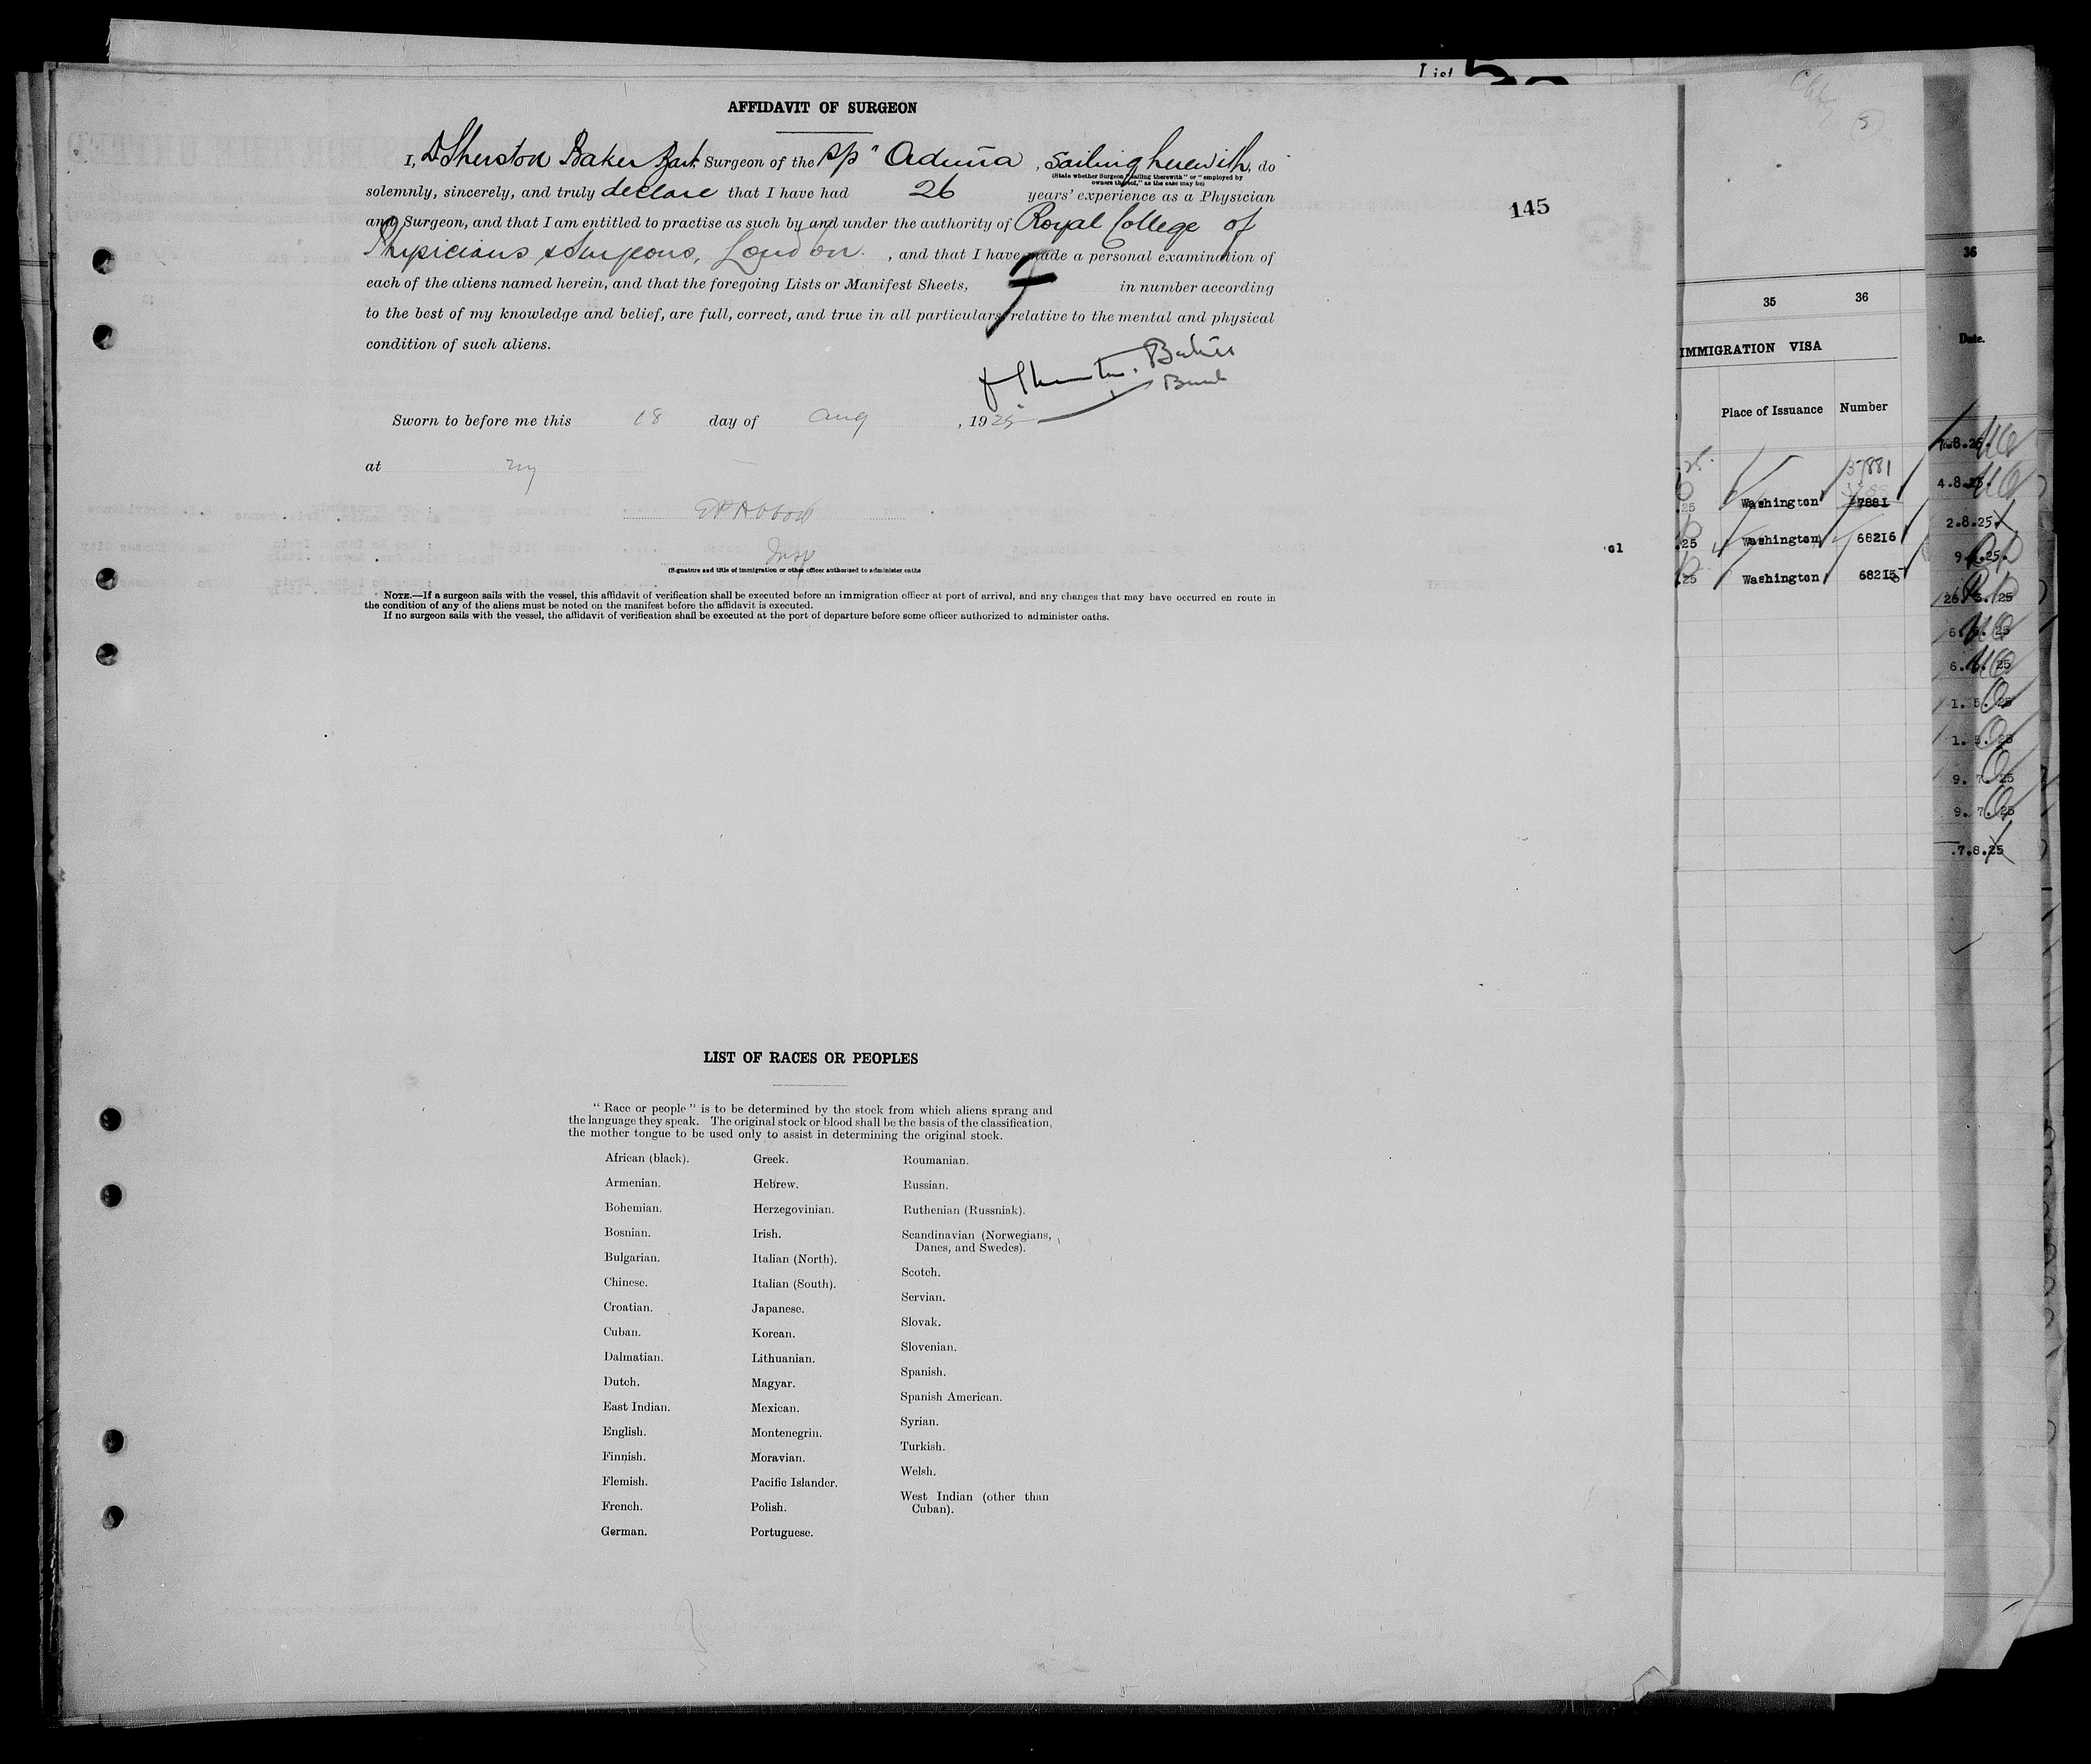 List
AFFIDAVIT OF SURGEON
I, D Sherston Baker Bart. Surgeon of the sp " Aduña , sailing herewith, do
(State whether Surgeon "sailing therewith" or "employed by
owners thereof," as the case may be)
solemnly, sincerely, and truly declare that I have had 26 years' experience as a Physician
and Surgeon, and that I am entitled to practise as such by and under the authority of Royal College of
Physicians & Surgeons, London. , and that I have made a personal examination of
each of the aliens named herein, and that the foregoing Lists or Manifest Sheets, in number according
to the best of my knowledge and belief, are full, correct, and true in all particulars relative to the mental and physical
condition of such aliens.
Sherston Baker
Bart
Sworn to before me this 18 day of Aug , 1925
at NY
Insp
(Signature and title of immigration or other officer authorized to administer oaths
NOTE.—If a surgeon sails with the vessel, this affidavit of verification shall be executed before an immigration officer at port of arrival, and any changes that may have occurred en route in
the condition of any of the aliens must be noted on the manifest before the affidavit is executed.
If no surgeon sails with the vessel, the affidavit of verification shall be executed at the port of departure before some officer authorized to administer oaths.
145
LIST OF RACES OR PEOPLES
"Race or people" is to be determined by the stock from which aliens sprang and
the language they speak. The original stock or blood shall be the basis of the classification,
the mother tongue to be used only to assist in determining the original stock.
African (black).
Armenian.
Bohemian.
Bosnian.
Bulgarian.
Chinese.
Croatian.
Cuban.
Dalmatian.
Dutch.
East Indian.
English.
Finnish.
Flemish.
French.
German.
Greek.
Hebrew.
Herzegovinian.
Irish.
Italian (North).
Italian (South).
Japanese.
Korean.
Lithuanian.
Magyar.
Mexican.
Montenegrin.
Moravian.
Pacific Islander.
Polish.
Portuguese.
Roumanian.
Russian.
Ruthenian (Russniak).
Scandinavian (Norwegians,
Danes, and Swedes).
Scotch.
Servian.
Slovak.
Slovenian.
Spanish.
Spanish American.
Syrian.
Turkish.
Welsh.
West Indian (other than
Cuban).
35 36
IMMIGRATION VISA
Place of Issuance Number
37881
.25 Washington 7881
.25 Washington 68216
.25 Washington 68215
36
Date.
7.8.25.
4.8.25.
2.8.25
1. 5. 25
9. 7. 25
9. 7. 25
.7.8.25